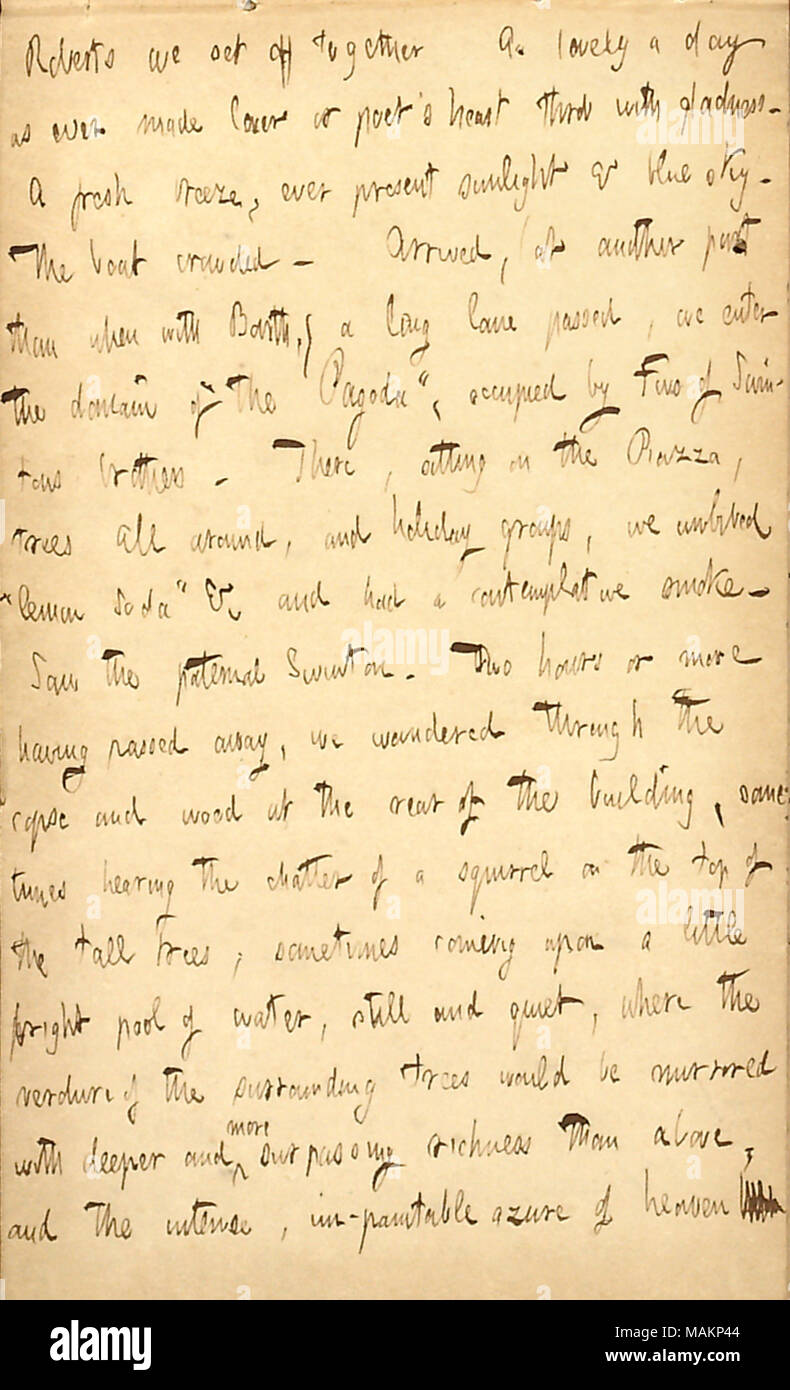 Roberts we set off together As lovely a day
as ever made lover or poet's heart throb with gladness.
A fresh breeze, ever present sunlight & blue sky.
The boat crowded — Arrived, (at another part
than when with Barth,) a long lane passed, we enter
the domain of "the Pagoda", occupied by Two of Swin-
tons brothers. There, sitting on the Piazza,
trees all around, and holiday groups, we imbibed
"lemon soda" &c, and had a contemplative smoke —
Saw the paternal Swinton. Two hours or more
having passed away, we wandered through the
copse and wood at the rear of the building, some-
times hearing the chatter of a squirrel on the top of
the tall trees; sometimes coming upon a little
bright pool of water, still and quiet, where the
verdure of the surrounding trees would be mirrored
with deeper and more surpassing richness than above,
and the intense, un-paintable azure of heaven
alamy
alamy
alamy
a
a
a
alamy
Image ID: MAKP44
www.alamy.com